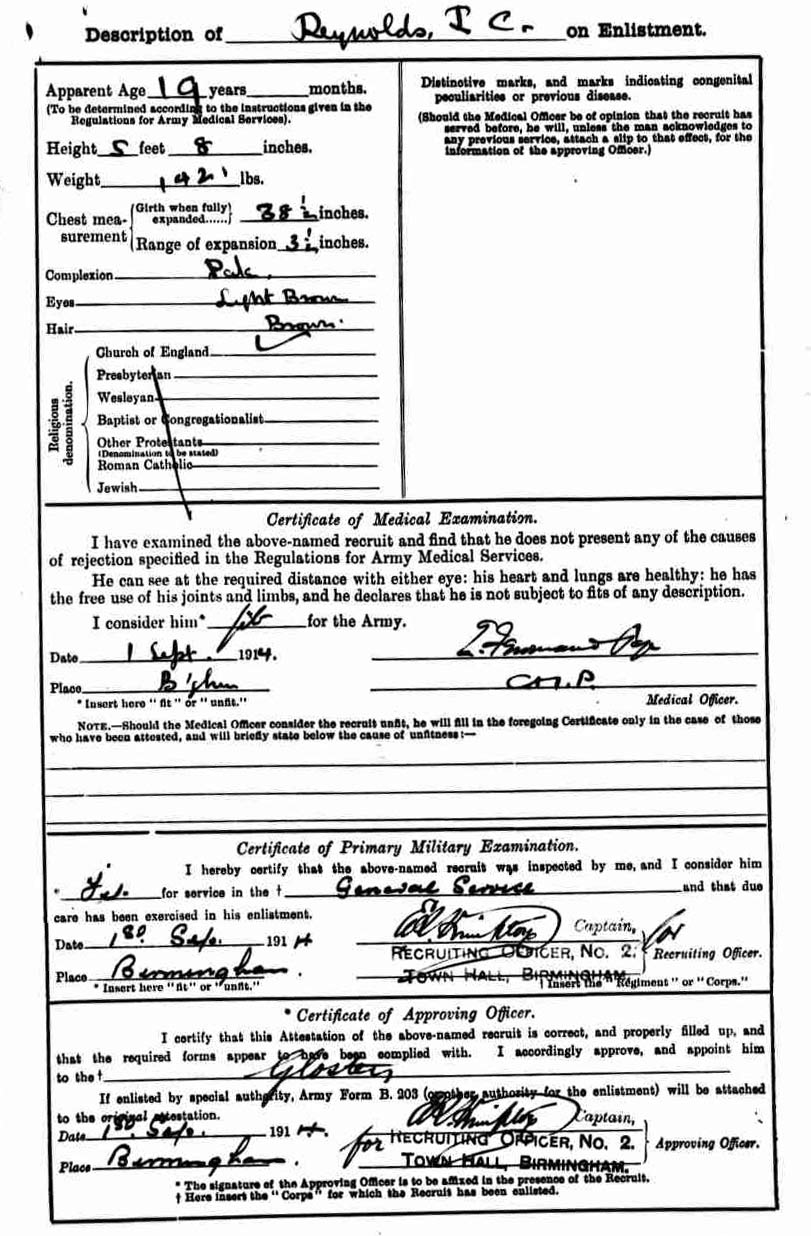 Description of Reynolds, I C. on Enlistment.
Apparent Age 19 years months.
(To be determined according to the instructions given in the
Regulations for Army Medical Services).
Height 5 feet 8 inches.
Weight 142 lbs.
Chest mea-
surement
Girth when fully
expanded...... 38 ½ inches.
Range of expansion 3 ½ inches.
Complexion Pale.
Eyes Light Brown
Hair Brown.
Religious
denomination.
Church of England
Presbyterian
Wesleyan
Baptist or Congregationalist
Other Protestants
(Denomination to be stated)
Roman Catholic
Jewish
Distinctive marks, and marks indicating congenital
peculiarities or previous disease.
(Should the Medical Officer be of opinion that the recruit has
served before, he will, unless the man acknowledges to
any previous service, attach a slip to that effect, for the
information of the approving Officer.)
Certificate of Medical Examination.
I have examined the above-named recruit and find that he does not present any of the causes
of rejection specified in the Regulations for Army Medical Services.
He can see at the required distance with either eye: his heart and lungs are healthy: he has
the free use of his joints and limbs, and he declares that he is not subject to fits of any description.
I consider him* fit for the Army.
Date 1 Sept. 1914.
Place B'ghm
* Insert here "fit" or "unfit."
Medical Officer.
NOTE.—Should the Medical Officer consider the recruit unfit, he will fill in the foregoing Certificate only in the case of those
who have been attested, and will briefly state below the cause of unfitness:—
Certificate of Primary Military Examination.
I hereby certify that the above-named recruit was inspected by me, and I consider him
* Fit. for service in the † General Service and that due
care has been exercised in his enlistment.
Date 1st Sep. 1914
Captain,
RECRUITING OFFICER, No. 2. for Recruiting Officer.
Place Birmingham.
TOWN HALL, BIRMINGHAM.
* Insert here "fit" or "unfit."
† Insert the "Regiment" or "Corps."
* Certificate of Approving Officer.
I certify that this Attestation of the above-named recruit is correct, and properly filled up, and
that the required forms appear to have been complied with. I accordingly approve, and appoint him
to the† Glosters
If enlisted by special authority, Army Form B. 203 (or other authority for the enlistment) will be attached
to the original attestation.
Date 1st Sep. 1914.
Captain,
for RECRUITING OFFICER, No. 2. Approving Officer.
Place Birmingham.
TOWN HALL, BIRMINGHAM.
* The signature of the Approving Officer is to be affixed in the presence of the Recruit.
† Here insert the "Corps" for which the Recruit has been enlisted.